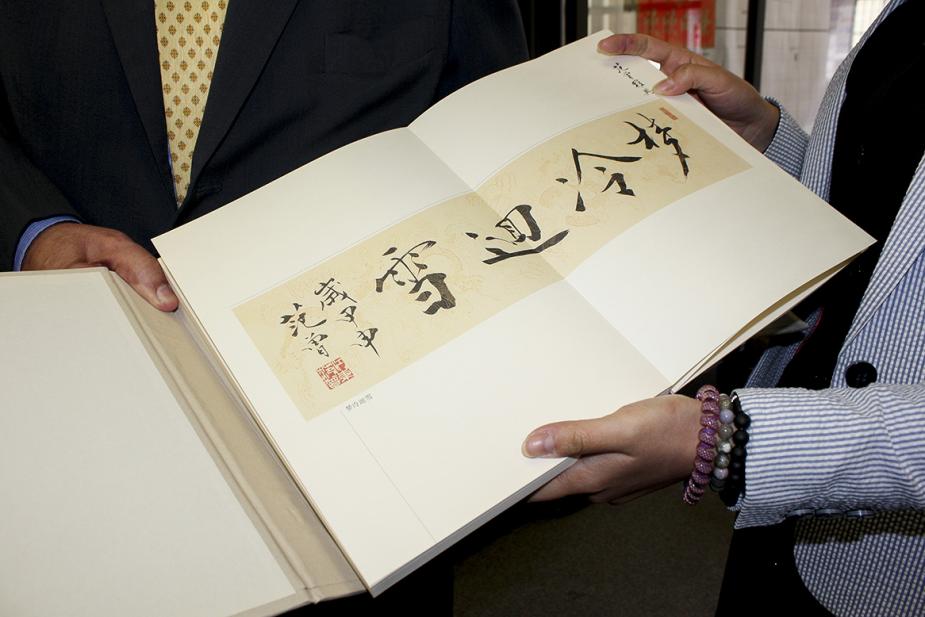 梦冷迴雪
歲甲申
范曾
梦冷迴雪